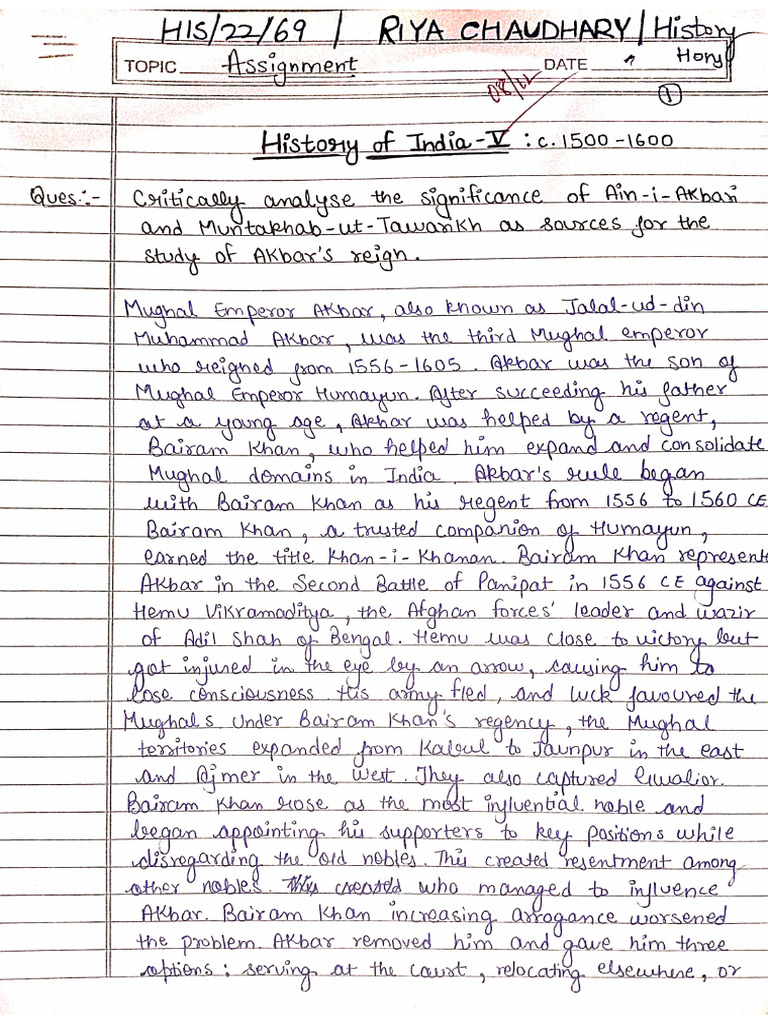 HIS/22/69 / RIYA CHAUDHARY / History
Hons
TOPIC Assignment DATE
08/12
1
History of India-V : c. 1500-1600
Ques:- Critically analyse the significance of Ain-i-Akbari
and Muntakhab-ut-Tawarikh as sources for the
study of Akbar's reign.
Mughal Emperor Akbar, also known as Jalal-ud-din
Muhammad Akbar, was the third Mughal emperor
who reigned from 1556-1605. Akbar was the son of
Mughal Emperor Humayun. After succeeding his father
at a young age, Akbar was helped by a regent,
Bairam Khan, who helped him expand and consolidate
Mughal domains in India. Akbar's rule began
with Bairam Khan as his regent from 1556 to 1560 CE
Bairam Khan, a trusted companion of Humayun,
earned the title Khan-i-Khanan. Bairam Khan represent
Akbar in the Second Battle of Panipat in 1556 CE against
Hemu Vikramaditya, the Afghan forces' leader and wazir
of Adil Shah of Bengal. Hemu was close to victory but
got injured in the eye by an arrow, causing him to
lose consciousness. His army fled, and luck favoured the
Mughals Under Bairam Khan's regency, the Mughal
territories expanded from Kabul to Jaunpur in the east
and Ajmer in the West. They also captured Gwalior.
Bairam Khan rose as the most influential noble and
began appointing his supporters to key positions while
disregarding the old nobles. This created resentment among
other nobles. This created who managed to influence
Akbar. Bairam Khan increasing arrogance worsened
the problem. Akbar removed him and gave him three
options: serving at the court, relocating elsewhere, or